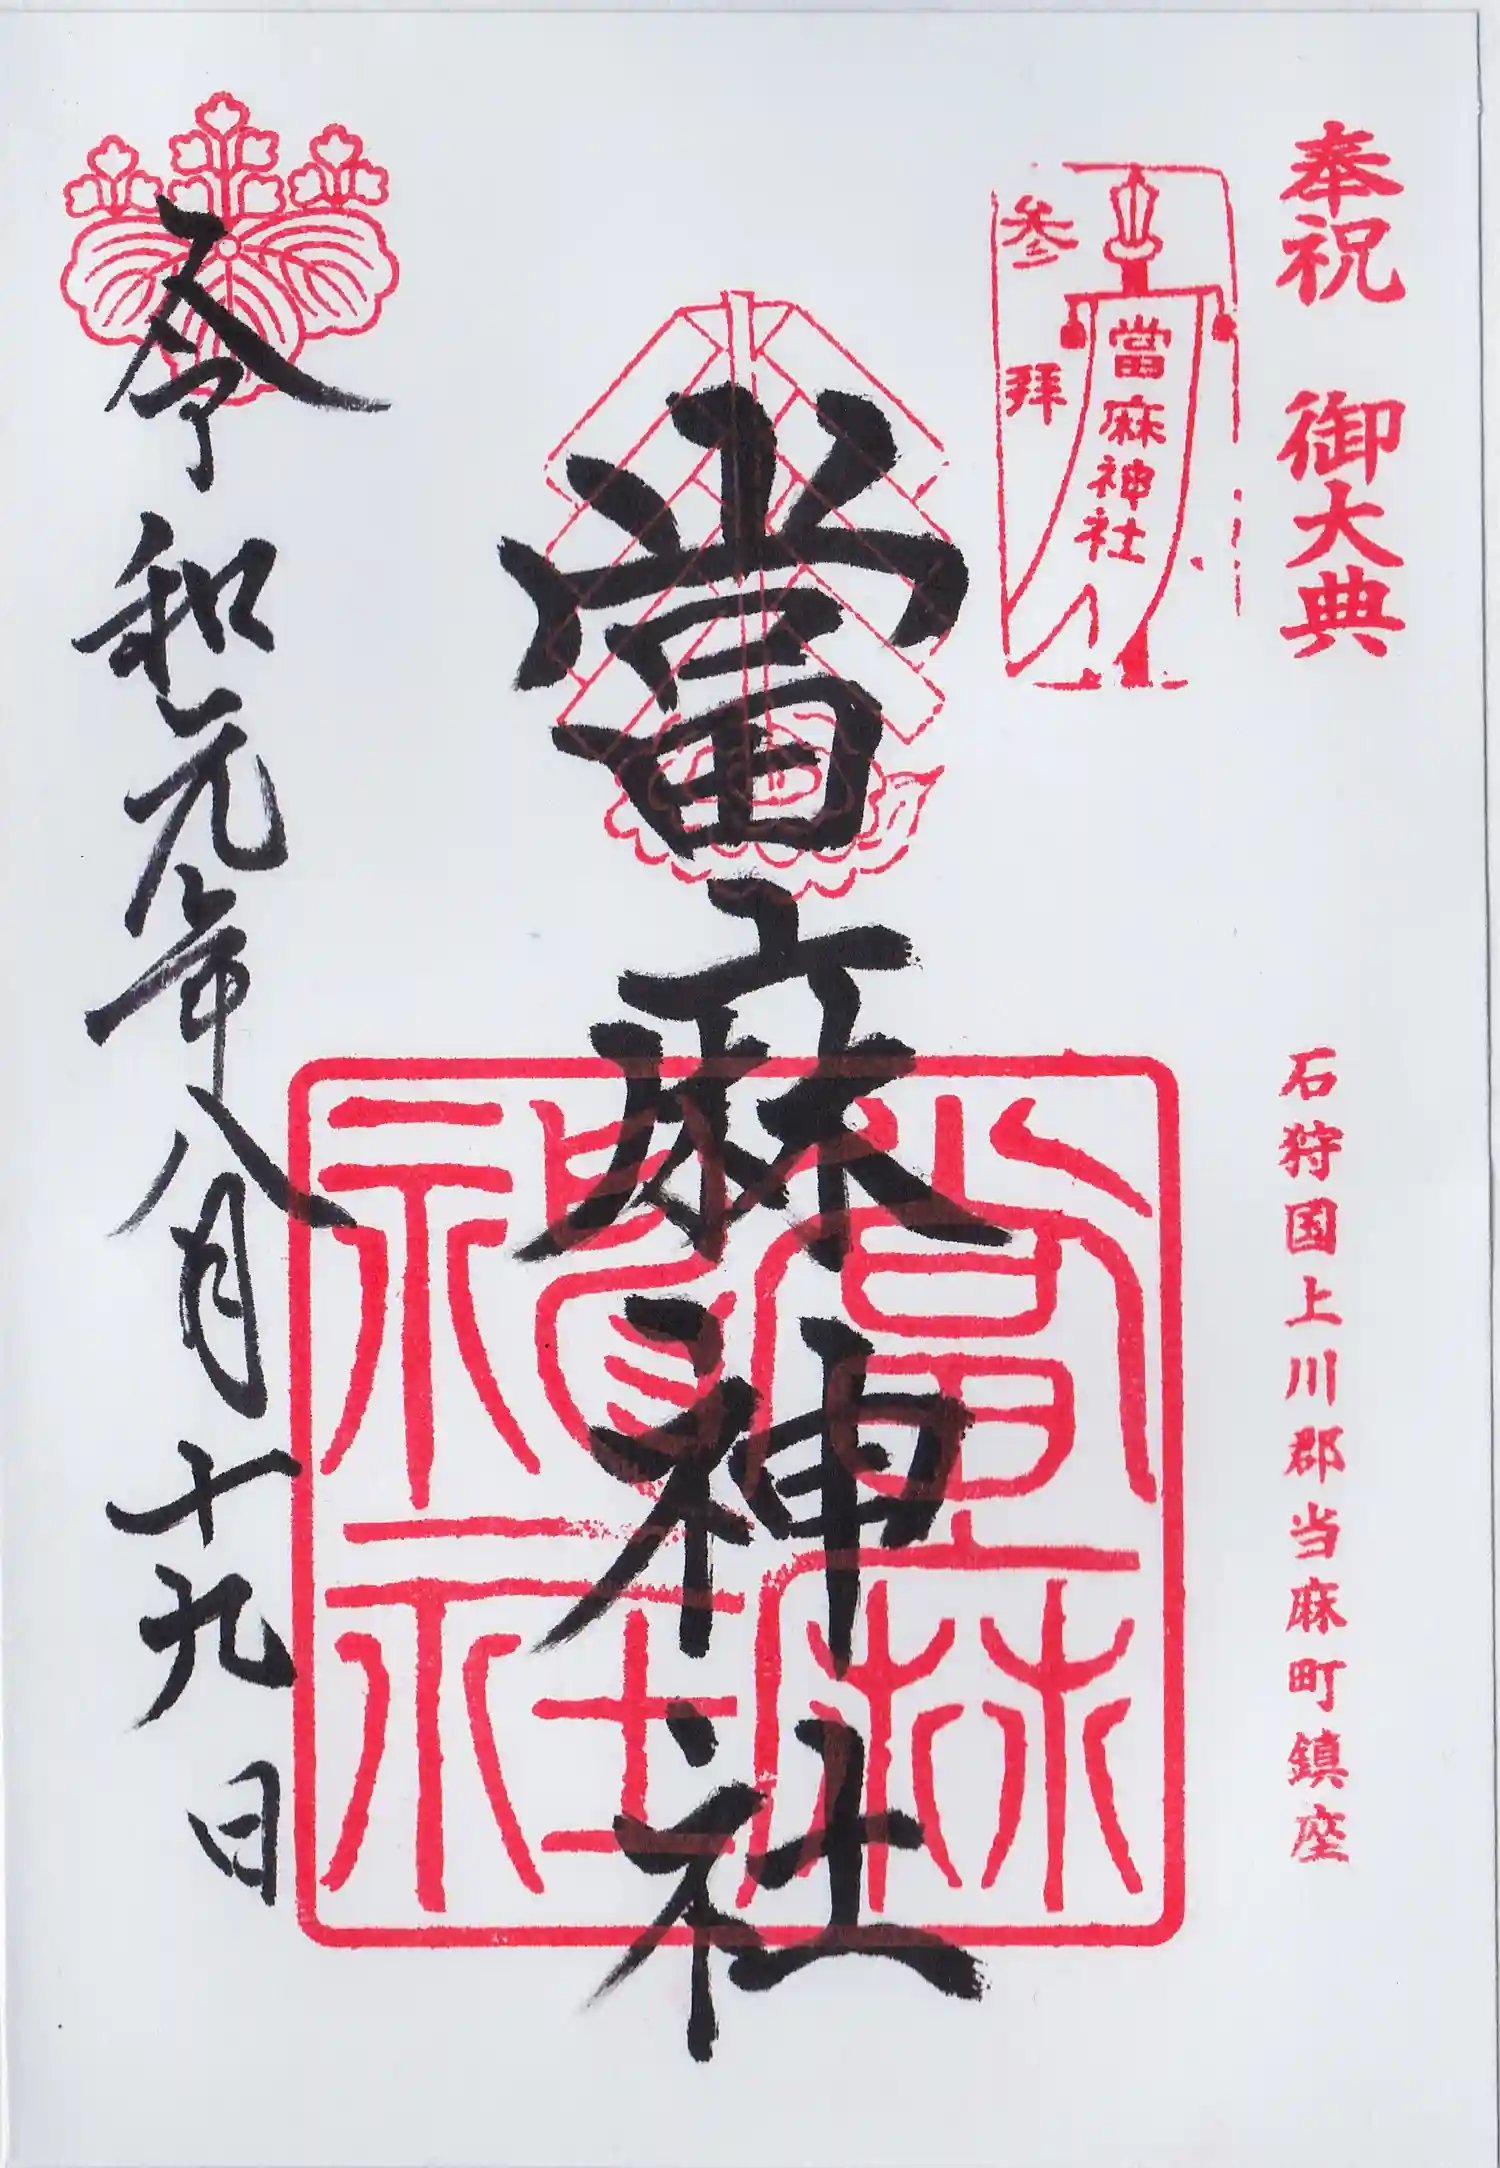 奉祝 御大典
石狩国上川郡当麻町鎮座
當麻神社
参拝
當麻神社
當麻神社
令和元年八月十九日